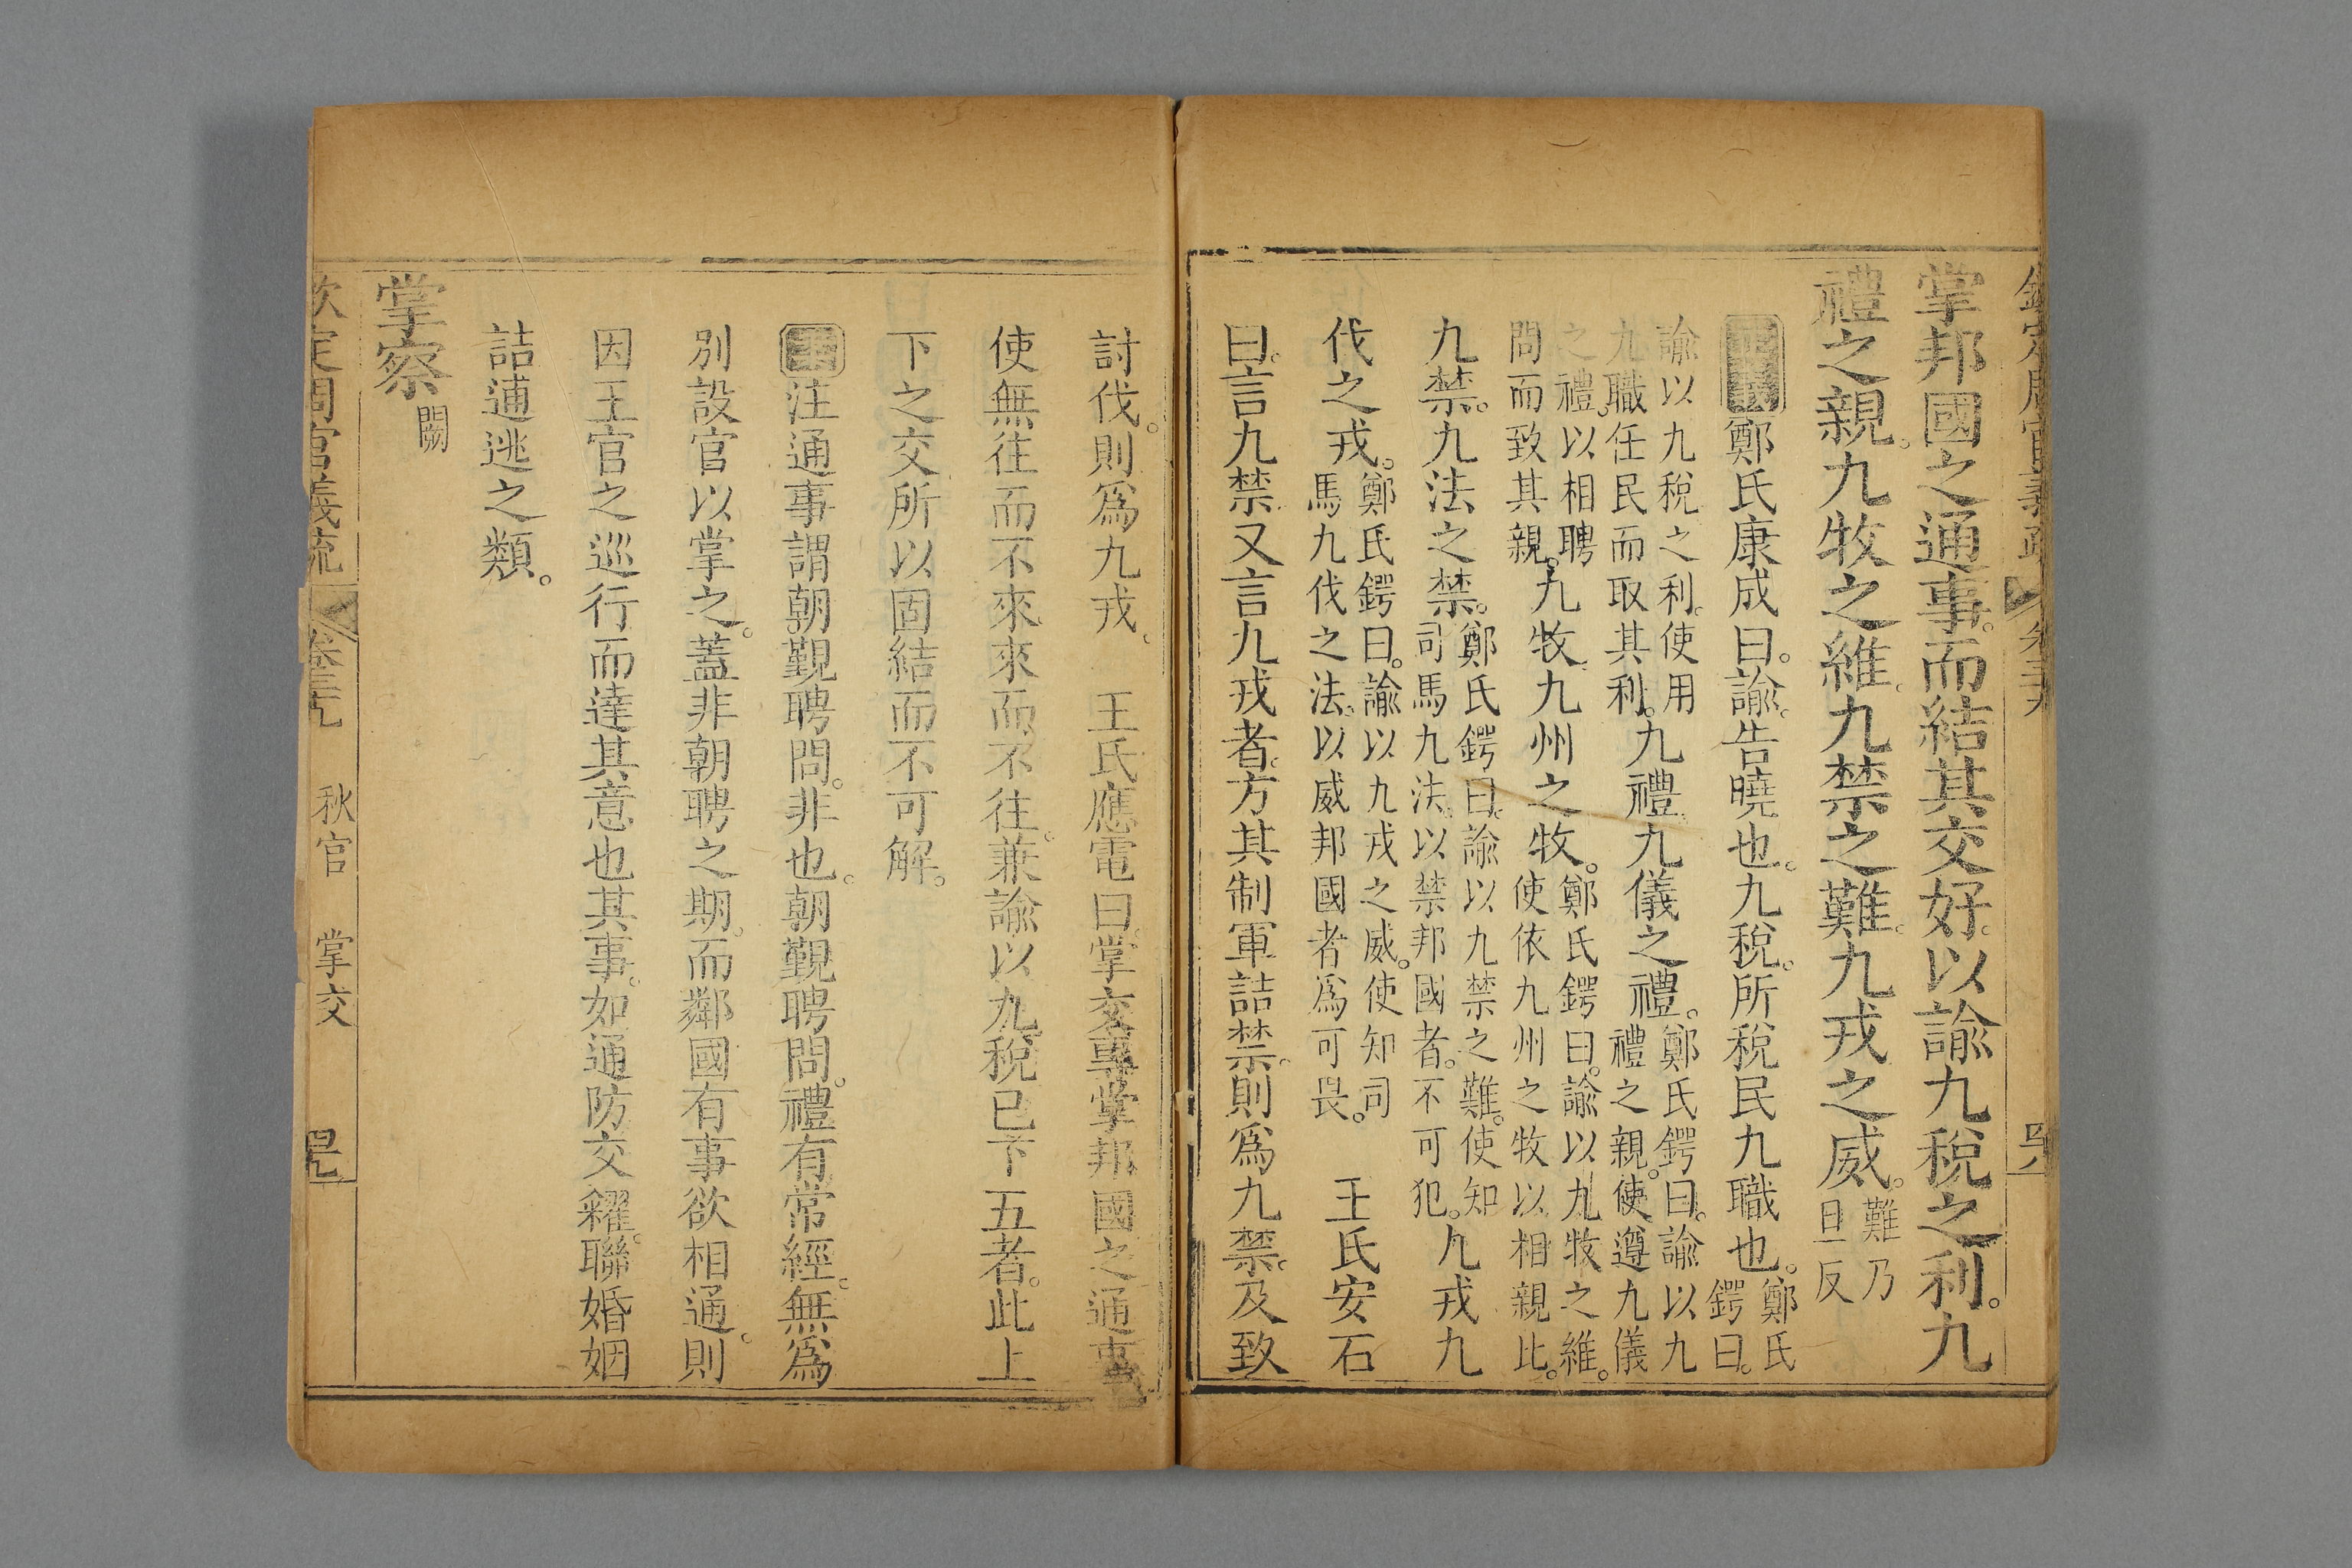 掌邦國之通事。而結其交好。以諭九稅之利。九
禮之親。九牧之維。九禁之難。九戎之威。難乃旦反
鄭氏康成曰。諭。告曉也。九稅。所稅民九職也。鄭氏鍔曰。
諭以九稅之利。使用九職任民而取其利。九禮。九儀之禮。鄭氏鍔曰。諭以九禮之親。使遵九儀
之禮。以相聘問而致其親。九牧。九州之牧。鄭氏鍔曰。諭以九牧之維。使依九州之牧以相親比。
九禁。九法之禁。鄭氏鍔曰。諭以九禁之難。使知司馬九法。以禁邦國者。不可犯。九戎。九
伐之戎。鄭氏鍔曰。諭以九戎之威。使知司馬九伐之法。以威邦國者爲可畏。 王氏安石
曰。言九禁又言九戎者。方其制軍詰禁。則爲九禁。及致
討伐。則爲九戎。 王氏應電曰。掌交專掌邦國之通事
使無往而不來。來而不往。兼諭以九稅已下五者。此上
下之交所以固結而不可解。
注通事謂朝覲聘問。非也。朝覲聘問。禮有常經。無爲
別設官以掌之。蓋非朝聘之期。而鄰國有事欲相通。則
因王官之巡行而達其意也其事。如通防交糴。聯婚姻
詰逋逃之類。
掌察闕
欽定周官義疏 卷三十九 秋官 掌交